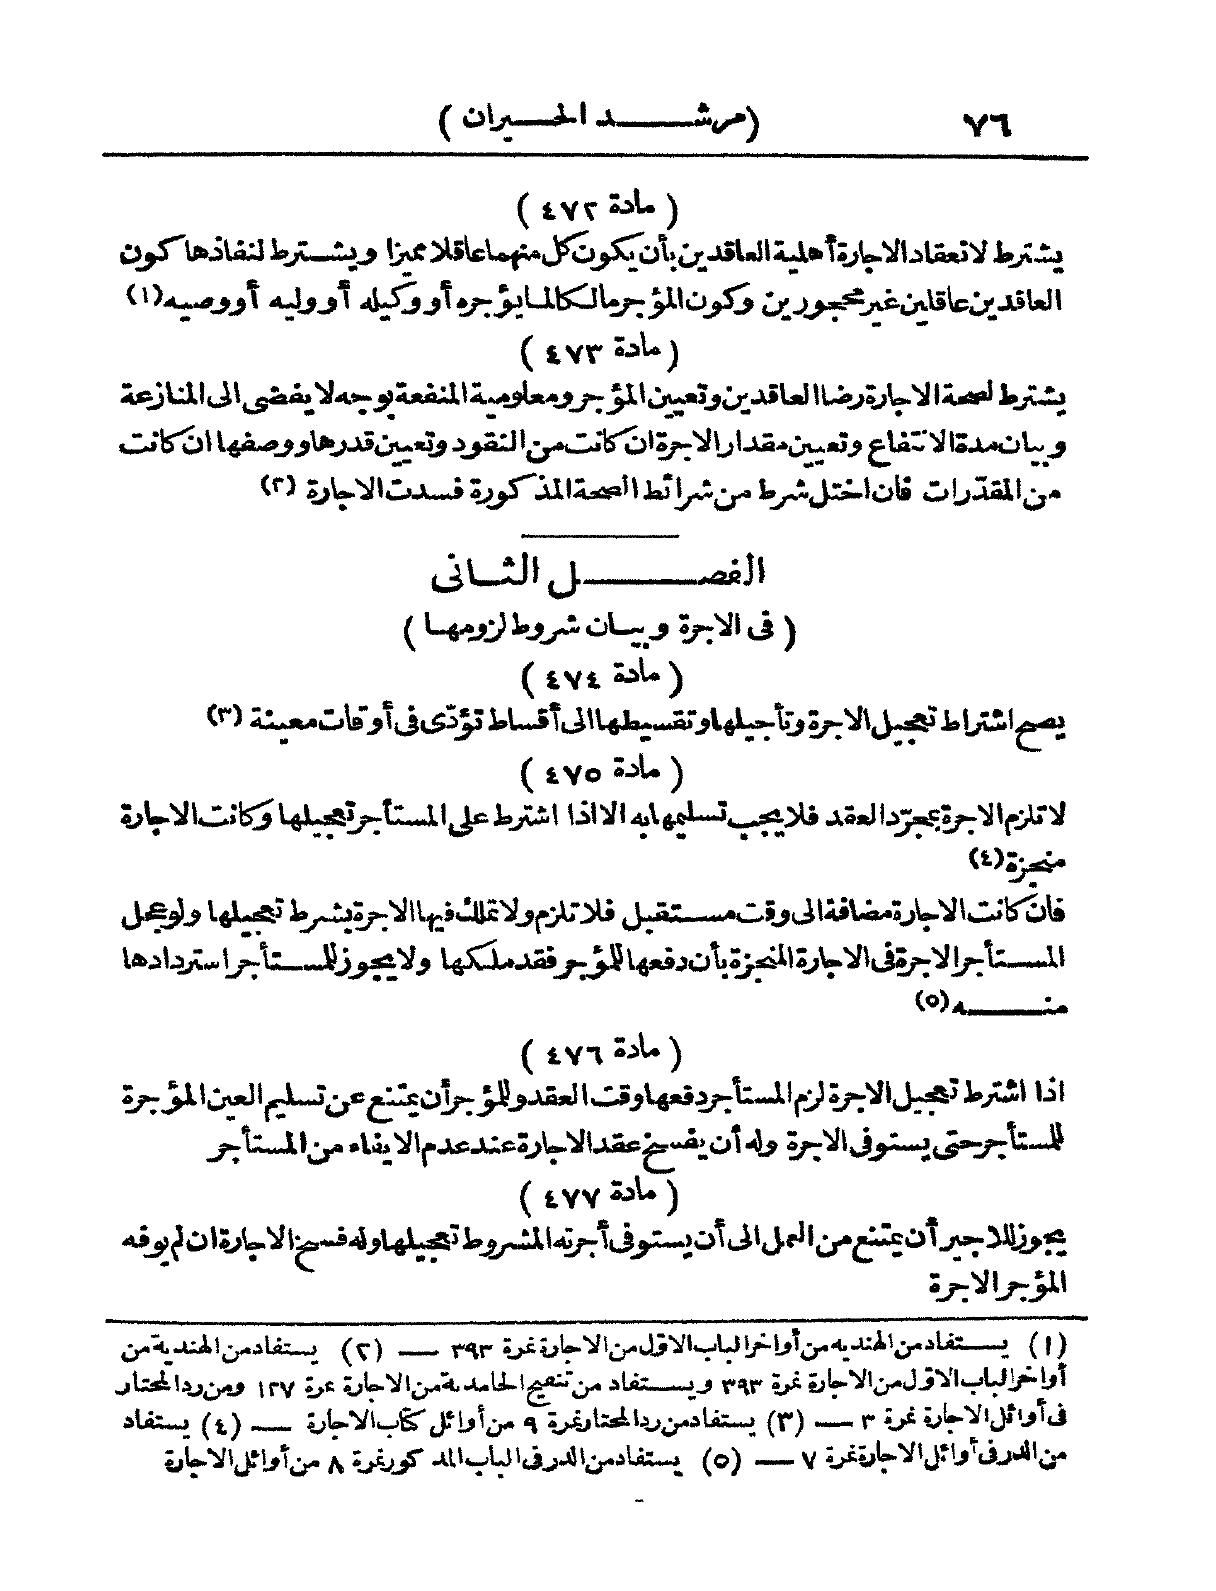 ٧٦
(مرشد الحيران)
( مادة ٤٧٢ )
يشترط لانعقاد الاجارة أهلية العاقدين بأن يكون كل منهما عاقلا مميزا ويشترط لنفاذها كون
العاقدين عاقلين غير محجورين وكون المؤجر مالكا لما يؤجره أو وكيله أو وليه أو وصيه (١)
( مادة ٤٧٣ )
يشترط لصحة الاجارة رضا العاقدين وتعيين المؤجر ومعلومية المنفعة بوجه لا يفضى الى المنازعة
وبيان مدة الانتفاع وتعيين مقدار الاجرة ان كانت من النقود وتعيين قدرها ووصفها ان كانت
من المقدّرات فان اختل شرط من شرائط الصحة المذكورة فسدت الاجارة (٢)
الفصل الثانى
( فى الاجرة وبيان شروط لزومها )
( مادة ٤٧٤ )
يصح اشتراط تعجيل الاجرة وتأجيلها وتقسيطها الى أقساط تؤدّى فى أوقات معينة (٣)
( مادة ٤٧٥ )
لا تلزم الاجرة بمجرّد العقد فلا يجب تسليمها به الا اذا اشترط على المستأجر تعجيلها وكانت الاجارة
منجزة (٤)
فان كانت الاجارة مضافة الى وقت مستقبل فلا تلزم ولا تملك فيها الاجرة بشرط تعجيلها ولو عجل
المستأجر الاجرة فى الاجارة المنجزة بأن دفعها للمؤجر فقد ملكها ولا يجوز للمستأجر استردادها
منه (٥)
( مادة ٤٧٦ )
اذا اشترط تعجيل الاجرة لزم المستأجر دفعها وقت العقد وللمؤجر أن يمتنع عن تسليم العين المؤجرة
للمستأجر حتى يستوفى الاجرة وله أن يفسخ عقد الاجارة عند عدم الايفاء من المستأجر
( مادة ٤٧٧ )
يجوز للاجير أن يمتنع من العمل الى أن يستوفى أجرته المشروط تعجيلها وله فسخ الاجارة ان لم يوفه
المؤجر الاجرة
(١) يستفاد من الهنديه من أواخر الباب الاوّل من الاجارة نمرة ٣٩٣ — (٢) يستفاد من الهندية من
أواخر الباب الاوّل من الاجارة نمرة ٣٩٣ ويستفاد من تنقيح الحامدية من الاجارة نمرة ١٢٧ ومن رد المحتار
فى أوائل الاجارة نمرة ٣ — (٣) يستفاد من رد المحتار نمرة ٩ من أوائل كتاب الاجارة — (٤) يستفاد
من الدر فى أوائل الاجارة نمرة ٧ — (٥) يستفاد من الدر فى الباب المذكور نمرة ٨ من أوائل الاجارة